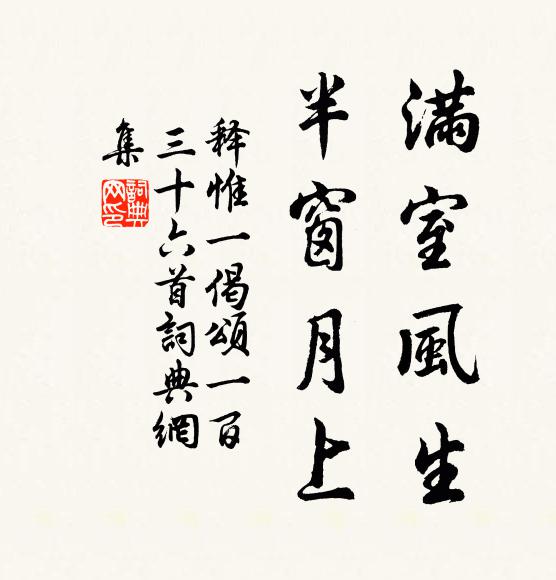 满室風生
半窗月上
释惟一偈颂一百
三十六首詞典網
集
詞典網印